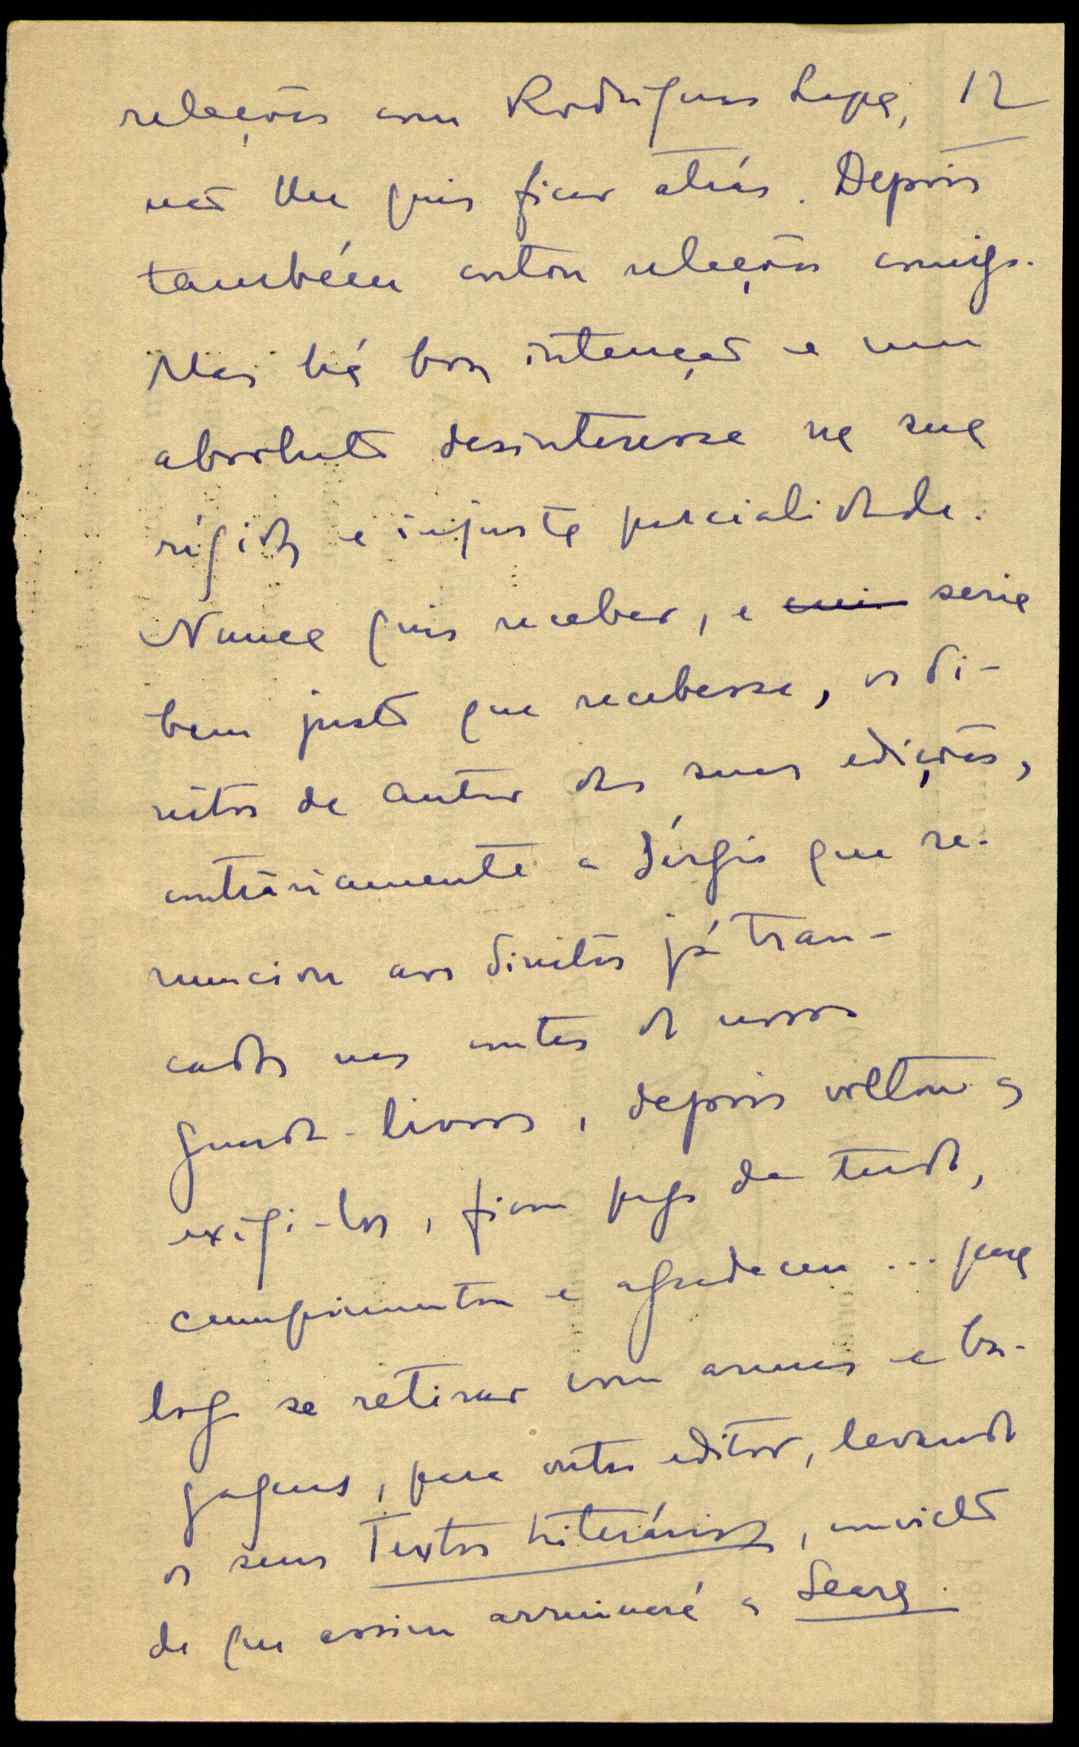 relações com Rodrigues Lapa, 12
não lhe quis ficar atrás. Depois
também cortou relações comigo.
Mas há boa intenção e um
absoluto desinteresse na sua
rígida e injusta parcialidade.
Nunca quis receber, e seria
bem justo que recebesse, os di-
reitos de autor das suas edições,
contràriamente a Sérgio que re-
nunciou aos direitos já tran-
cados nas contas do nosso
guarda-livros, depois voltou a
exigi-los, ficou pago de tudo,
cumprimentou e agradeceu... para
logo se retirar com armas e ba-
gagens, para outro editor, levando
os seus Textos Literários, convicto
de que assim arruinará a Seara.